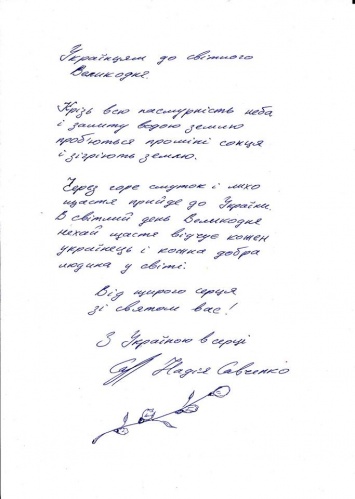 Українцям до світлого
Великодня.
Крізь всю пасмурність неба
і залиту водою землю
проб'ються проміні сонця
і зігріють землю.
Через горе смуток і лихо
щастя прийде до України.
В світлий день Великодня
нехай щастя відчує кожен
українець і кожна добра
людина у світі.
Від щирого серця
зі святом вас!
З Україною в серці
Надія Савченко